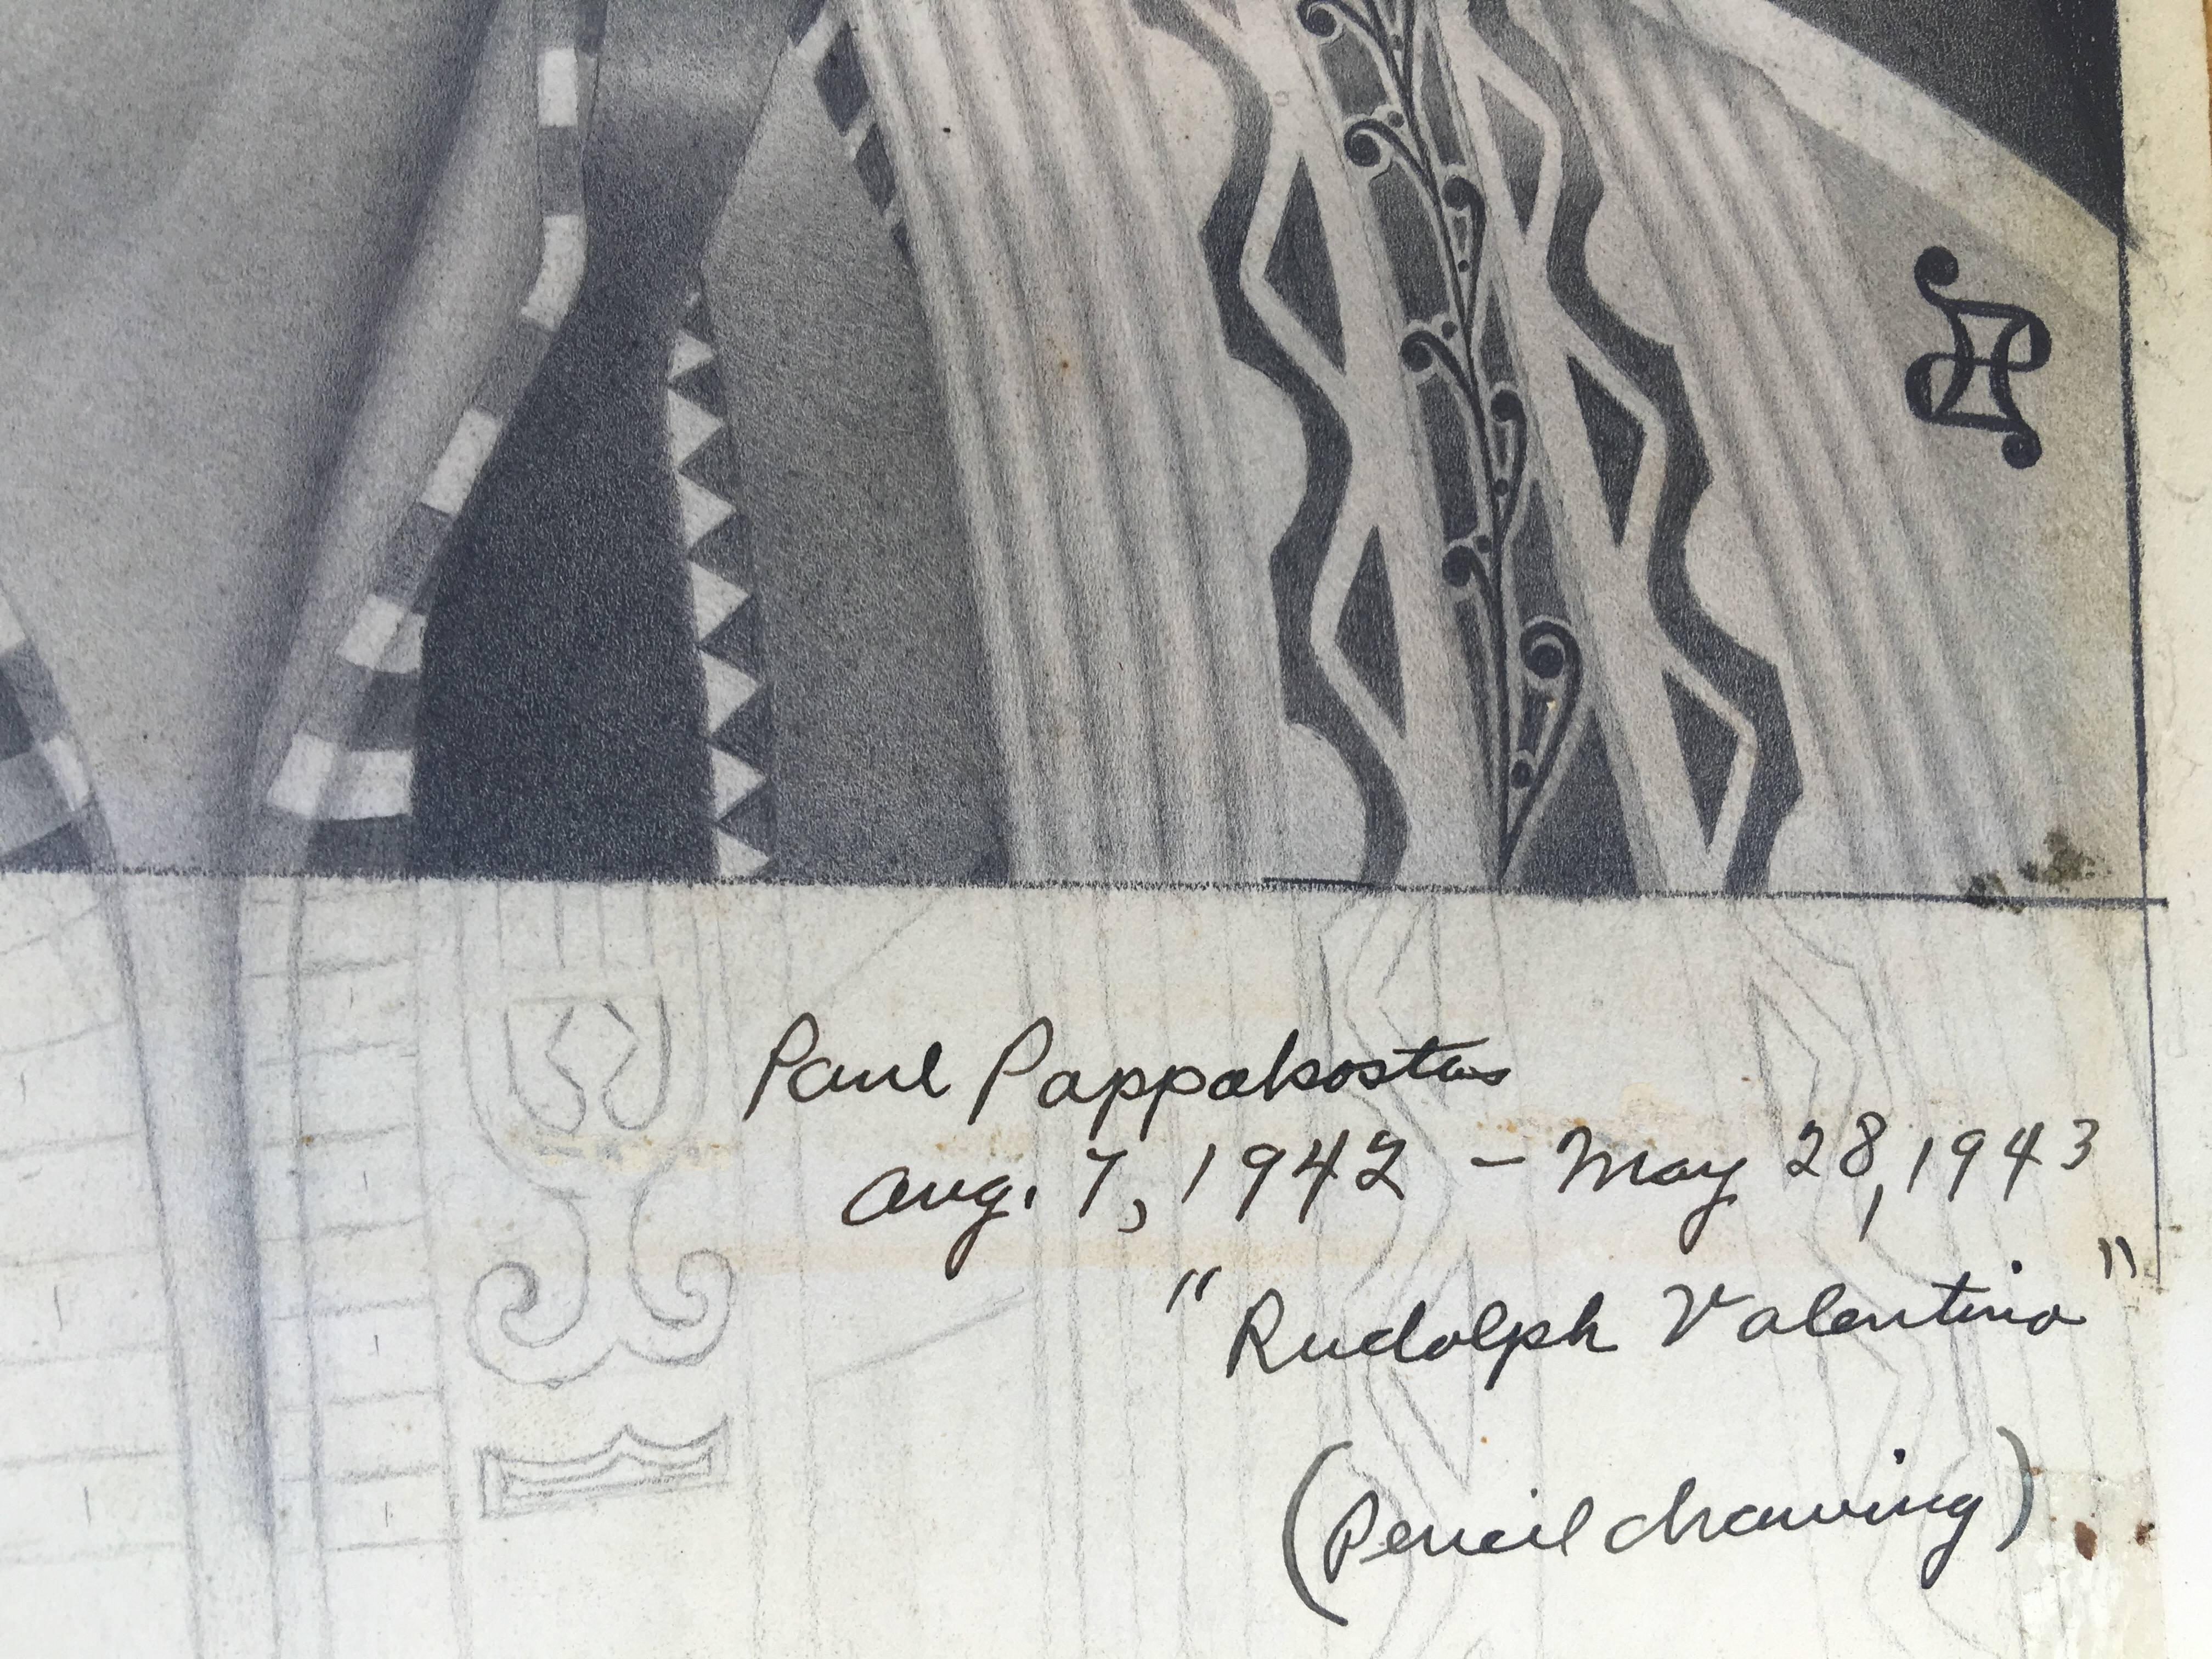 Paul Pappakostas
Aug. 7, 1942 – May 28, 1943
"Rudolph Valentino"
(Pencil drawing)